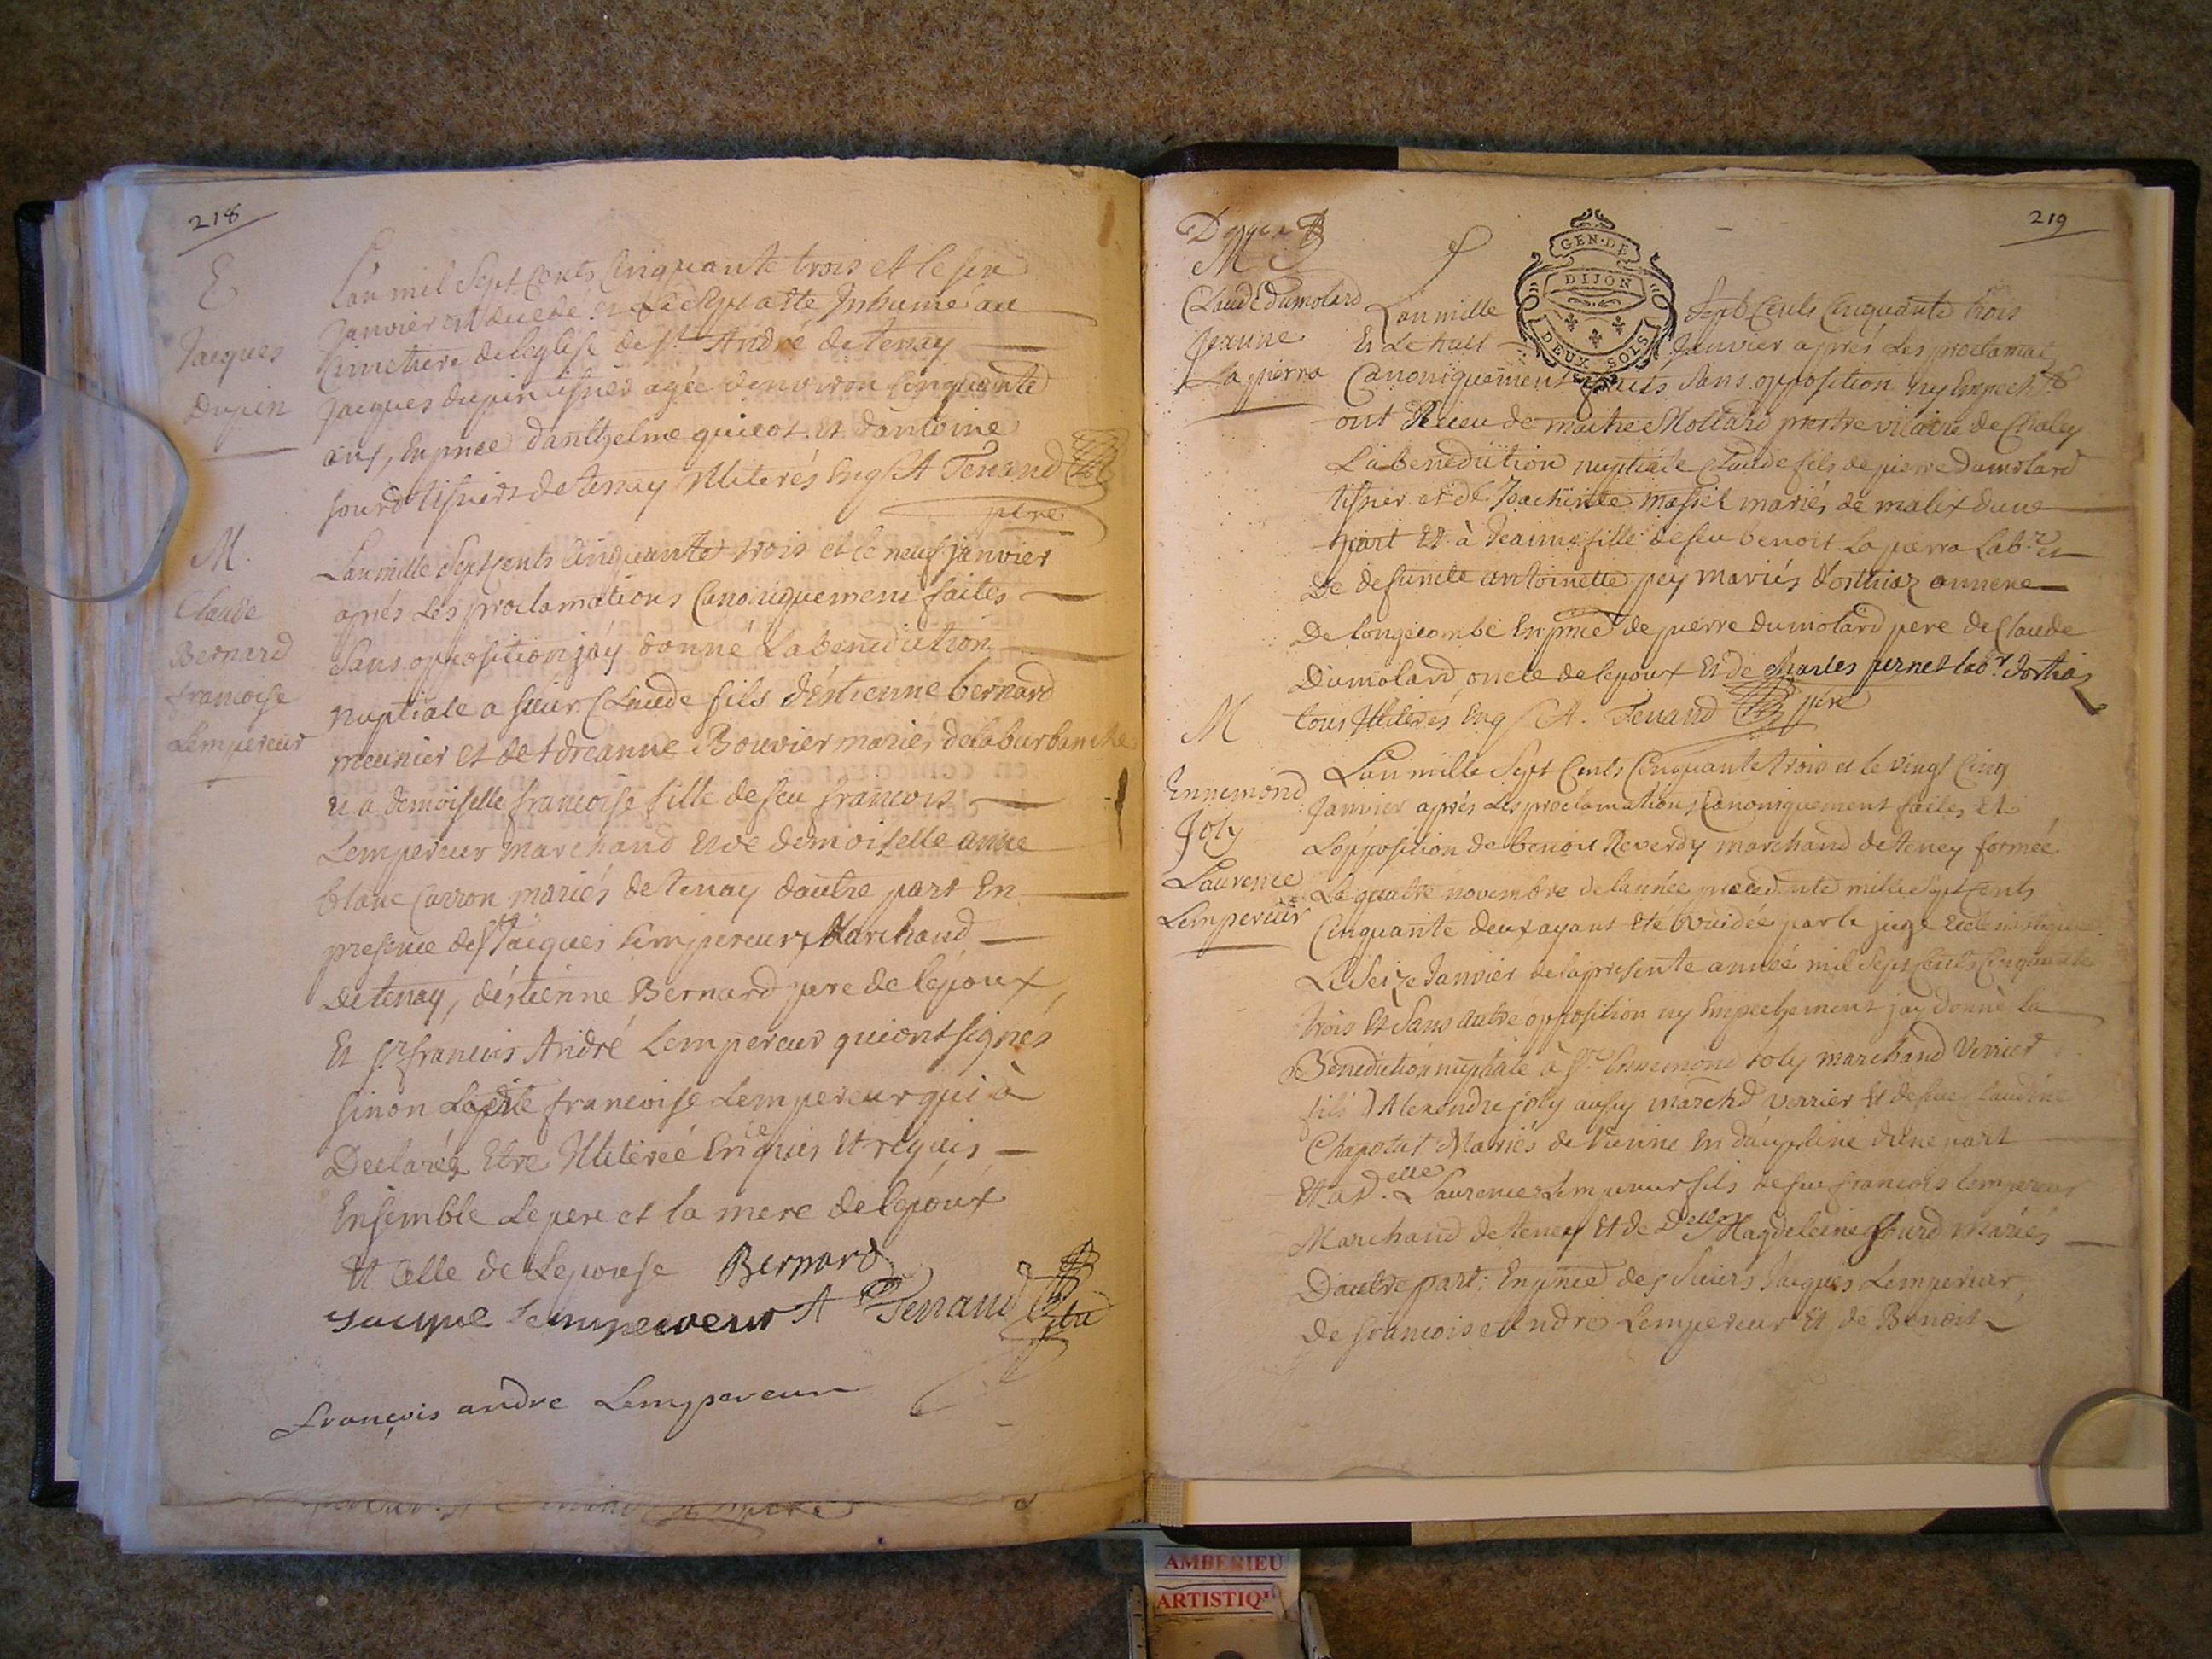 218
E
Jacques
Dupin
L'an mil Sept Cents Cinquante trois et le six
Janvier est decedé et le Sept atte Inhumé au
Cimetiere de leglise de St. André de tenay
Jacques dupin tisnier agée denviron Cinquante
ans, En pnce d'anthelme guicot et dantoine
sourd tisniers de tenay Illiterés Enq A Tenand
ptre
M.
Claude
Bernard
francoise
Lempereur
L'an mille Sept Cents Cinquante trois et le neuf janvier
aprés Les proclamations Canoniquement faites
Sans opposition jáy donné La benediction
nuptiale a sieur Claude fils déstienne bernard
meunier et de Adreanne Bouvier mariés de la burbanche
et a demoiselle francoise fille de feu francois
Lempereur marchand et de demoiselle anne
blanc Carron mariés de tenay dautre part En
presence de Sr Jacques Lempereur Marchand
de tenay, déstienne Bernard pere de lépoux,
Et Sr francois André Lempereur qui ont signés
sinon Ladite francoise Lempereur qui à
Declaréz Etre Illiterée Enquise Et requis
Ensemble Le pere et la mere de lépoux
Et Celle de Lepouse Bernard
Jacque Lempereur A Tenand ptre
françois andre Lempereur
219
GEN·DE
DIJON
DEUX SOLS
M
Claude Dumolard
Jeanne
La pierra
L'an mille Sept Cents Cinquante trois
Et Le huit Janvier aprés Les proclamat.
Canoniquement faites Sans opposition ny Empecht
ont Receu de maitre Mollard prestre vicaire de Chaley
La benediction nuptiale Claude fils de pierre Dumolard
tisnier et de Joachinte massel mariés de malix dune
part Et à Jeanne fille de feu benoit La pierra Labr. et
De defuncte antoinette pey mariés dorthiaz annexe
De longecombe En pnce de pierre dumolard pere de Claude
Dumolard oncle de lepoux Et de Charles pernet labr. Dorthiaz
tous Illiterés Enq A. Tenand ptre
M
Ennemond
Joly
Laurence
Lempereur
L'an mille Sept Cents Cinquante trois et le Vingt Cinq
Janvier aprés Les proclamations Canoniquement faites Et
Lópposition de benoit Reverdy marchand de teney formée
Le quatre novembre de lannée precedente mille Sept Cents
Cinquante deux ayant Eté vuidée par le juge Ecclesiastique
Le Seize Janvier de la presente année mil Sept Cents Cinquante
trois Et Sans autre opposition ny Empechement jay donné la
Benediction nuptiale à Sr. Ennemond Joly marchand Verrier
fils D Alexandre joly aussy marchd verrier Et de feue Claudine
Chapotat Mariés de Vienne En dauphine d'une part
Et a D.elle Laurence Lempereur fils de feu francois Lempereur
Marchand de teney Et de Delle Magdeleine Sourd Mariés
D'autre part: En pnce des Sieurs Jacques Lempereur,
De francois Andre Lempereur Et de Benoit
AMBERIEU
ARTISTIQ